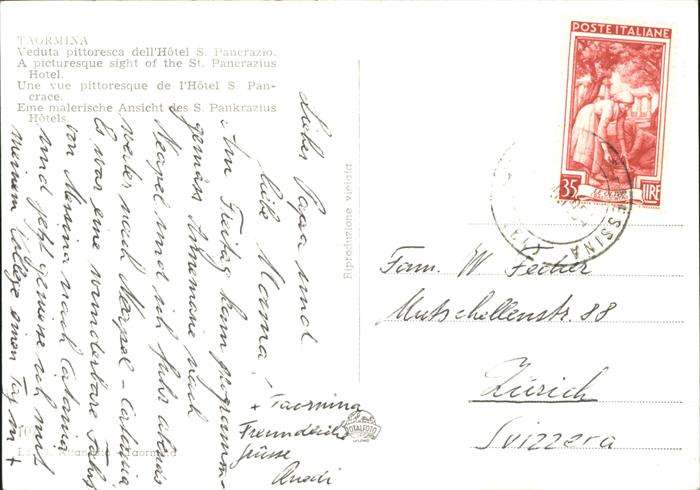 TAORMINA
Veduta pittoresca dell'Hôtel S. Pancrazio.
A picturesque sight of the St. Pancrazius
Hotel.
Une vue pittoresque de l'Hôtel S. Pan-
crace.
Eine malerische Ansicht des S. Pankrazius
Hôtels.
Liebe Papa und
liebe Mama!
Am Freitag kam programm-
gemäss Annemarie nach
Neapel und ich fuhr abends
weiter nach Neapel - Catania
Es war eine wunderbare Fahrt
von Messina nach Catania
und jetzt geniesse ich mit
meinem College einen Tag in +
+ Taormina
Freundliche
Grüsse
Riproduzione vietata
POSTE ITALIANE
35 LIRE
MESSINA
Fam. W Fecher
Mutschellenstr. 88
Zürich
Svizzera
ROTALFOTO